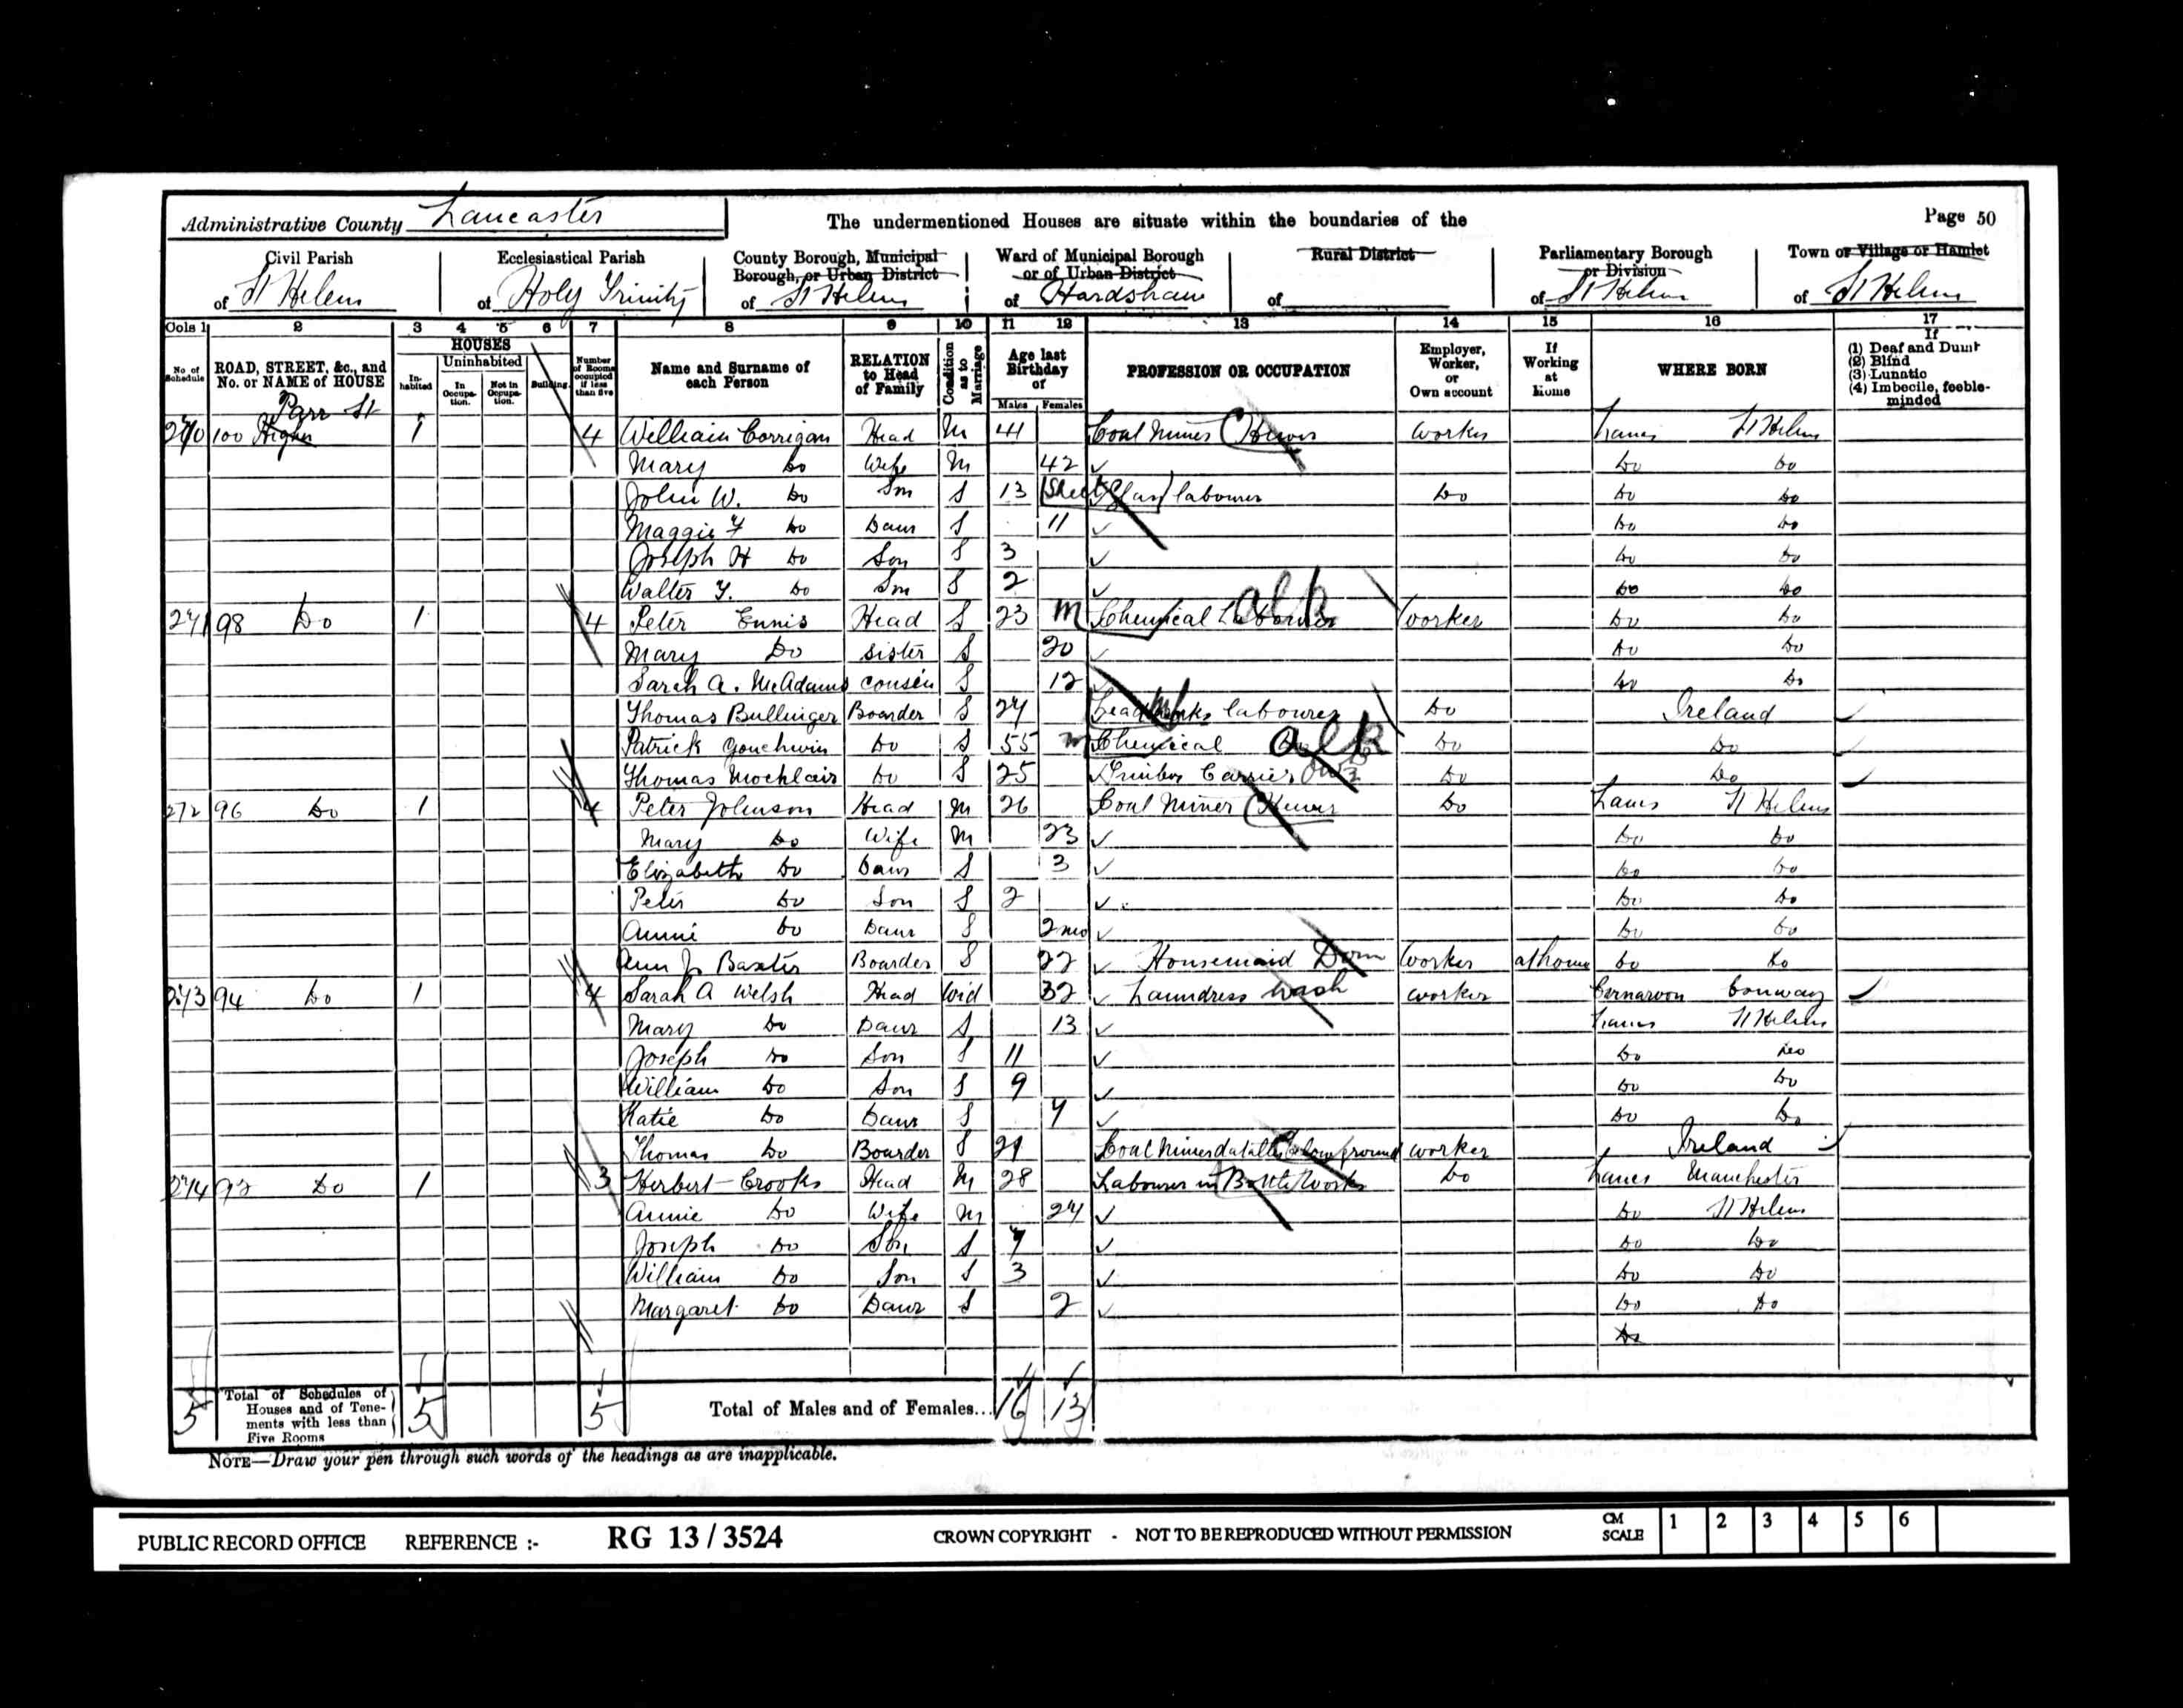 Administrative County Lancaster The undermentioned Houses are situate within the boundaries of the Page 50
Civil Parish of St Helens
Ecclesiastical Parish of Holy Trinity
County Borough, Municipal Borough, or Urban District of St Helens
Ward of Municipal Borough or of Urban District of Hardshaw
Rural District of
Parliamentary Borough or Division of St Helens
Town or Village or Hamlet of St Helens
Cols 1 2 3 4 5 6 7 8 9 10 11 12 13 14 15 16 17
No of Schedule
ROAD, STREET, &c., and No. or NAME of HOUSE
HOUSES
Inhabited
Uninhabited
In Occupation.
Not in Occupation.
Building.
Number of Rooms occupied if less than five
Name and Surname of each Person
RELATION to Head of Family
Condition as to Marriage
Age last Birthday of
Males Females
PROFESSION OR OCCUPATION
Employer, Worker, or Own account
If Working at Home
WHERE BORN
If
(1) Deaf and Dumb
(2) Blind
(3) Lunatic
(4) Imbecile, feeble-minded
Parr St
270 100 Higher 1 4 William Corrigan Head M 41 Coal Miner Hewer Worker Lancs St Helens
Mary Do Wife M 42 Do Do
John W. Do Son S 13 Sheet Glass labourer Do Do Do
Maggie Do Daur S 11 Do Do
Joseph H Do Son S 3 Do Do
Walter Do Son S 2 Do Do
271 98 Do 1 4 Peter Ennis Head S 23 M Chemical Labourer alk Worker Do Do
Mary Do Sister S 20 Do Do
Sarah A. McAdams Cousin S 12 Do Do
Thomas Bullinger Boarder S 24 Lead works labourer Do Ireland
Patrick Do S 55 Chemical Do alk Do Do
Thomas Mochlair Do S 25 Timber Carrier Do Do
272 96 Do 1 4 Peter Johnson Head M 26 Coal Miner Hewer Do Lancs St Helens
Mary Do Wife M 23 Do Do
Elizabeth Do Daur S 3 Do Do
Peter Do Son S 2 Do Do
Annie Do Daur S 2mo Do Do
Ann J. Baxter Boarder S 22 Housemaid Dom Worker at home Do Do
273 94 Do 1 4 Sarah A Welsh Head Wid 32 Laundress wash worker Carnarvon Conway
Mary Do Daur S 13 Lancs St Helens
Joseph Do Son S 11 Do Do
William Do Son S 9 Do Do
Katie Do Daur S 7 Do Do
Thomas Do Boarder S Coal Miner dataller below ground worker Ireland
274 92 Do 1 3 Herbert Crooks Head M 28 Labourer in Bottle Works Do Lancs Manchester
Annie Do Wife M 24 Do St Helens
Joseph Do Son S 7 Do Do
William Do Son S 3 Do Do
Margaret Do Daur S 2 Do Do
Do
5 Total of Schedules of Houses and of Tenements with less than Five Rooms 5 5 Total of Males and of Females... 16 13
NOTE—Draw your pen through such words of the headings as are inapplicable.
PUBLIC RECORD OFFICE REFERENCE :- RG 13 / 3524 CROWN COPYRIGHT - NOT TO BE REPRODUCED WITHOUT PERMISSION CM SCALE 1 2 3 4 5 6